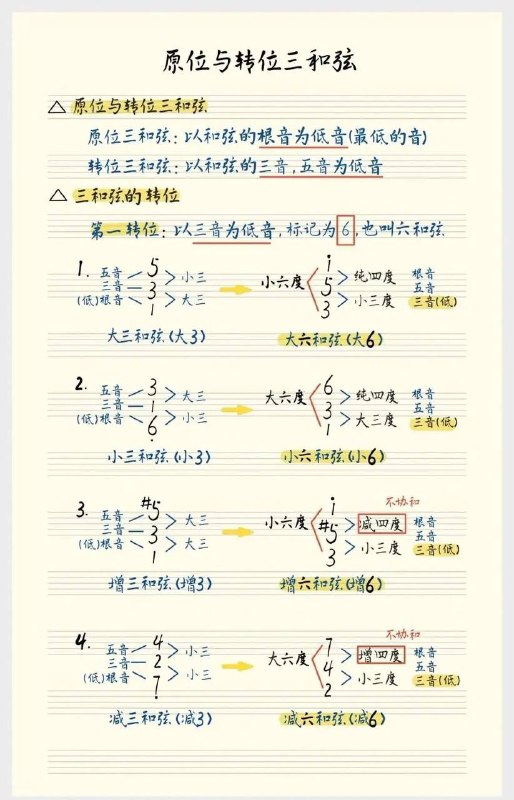 原位与转位三和弦
△ 原位与转位三和弦
原位三和弦：以和弦的根音为低音(最低的音)
转位三和弦：以和弦的三音，五音为低音
△ 三和弦的转位
第一转位：以三音为低音，标记为6，也叫六和弦
1.
五音 5
三音 3
(低)根音 1
小三
大三
小六度
i
5
3
纯四度
小三度
根音
五音
三音(低)
大三和弦(大3)
大六和弦(大6)
2.
五音 3
三音 1
(低)根音 6̣
大三
小三
大六度
6
3
1
纯四度
大三度
根音
五音
三音(低)
小三和弦(小3)
小六和弦(小6)
3.
五音 #5
三音 3
(低)根音 1
大三
大三
小六度
i
#5
3
不协和
减四度
小三度
根音
五音
三音(低)
增三和弦(增3)
增六和弦(增6)
4.
五音 4
三音 2
(低)根音 7̣
小三
小三
大六度
7
4
2
不协和
增四度
小三度
根音
五音
三音(低)
减三和弦(减3)
减六和弦(减6)